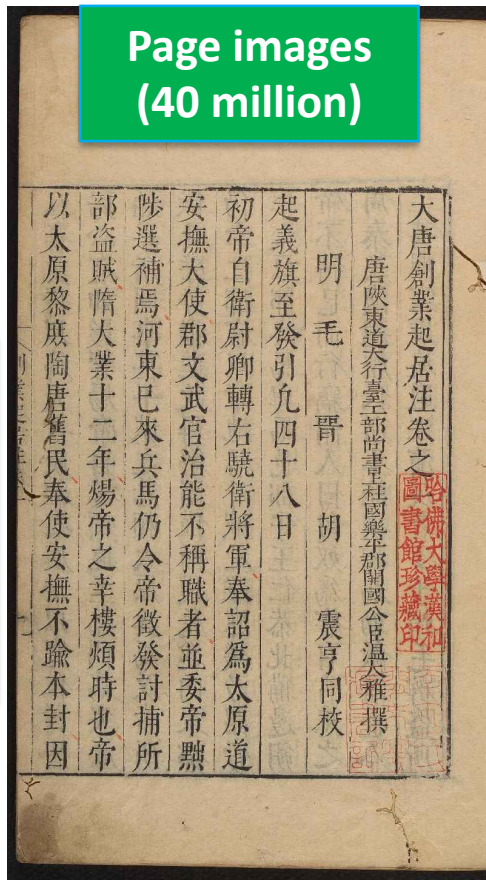 Page images
(40 million)
大唐創業起居注卷之
唐陝東道大行臺工部尚書上柱國樂平郡開國公臣溫大雅撰
明 毛 晉 胡 震亨同校
起義旗至發引凢四十八日
初帝自衛尉卿轉右驍衛將軍奉詔爲太原道
安撫大使郡文武官治能不稱職者並委帝黜
陟選補焉河東已來兵馬仍令帝徵發討捕所
部盜賊隋大業十二年煬帝之幸樓煩時也帝
以太原黎庶陶唐舊民奉使安撫不踰本封因
哈佛大學漢和
圖書館珍藏印